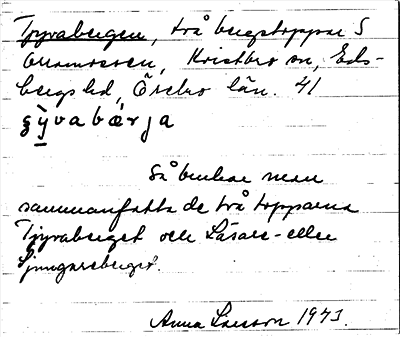 Tjyvabergen, två bergstoppar S
Orramossen, Kvistbro sn, Eds-
bergs hd, Örebro län. 41
ȿy̆vabærja
Så brukar man
sammanfatta de två topparna
Tjyvaberget och Läsare- eller
Ljungareberget.
Anna Larsson 1973.